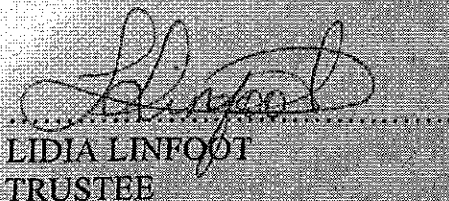 L Linfoot
LIDIA LINFOOT
TRUSTEE